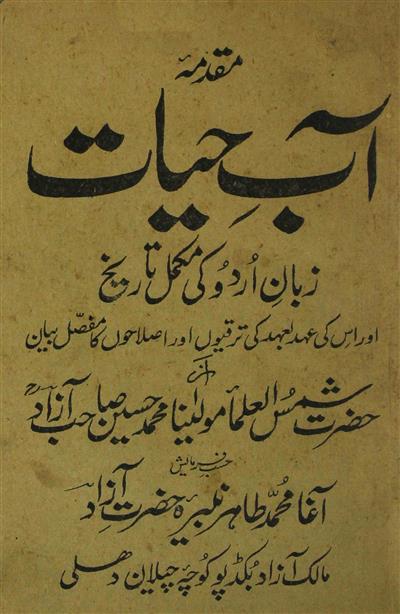 مقدمۂ
آبِ حیات
زبانِ اُردو کی مکمل تاریخ
اور اس کی عہد بعہد کی ترقیوں اور اصلاحوں کا مفصّل بیان
از
حضرت شمس العلماء مولیٰنا محمد حسین صاحب آزادؔ
حسب فرمایش
آغا محمد طاہر نبیرۂ حضرت آزادؔ
مالک آزاد بکڈپو کوچہ چیلان دھلی